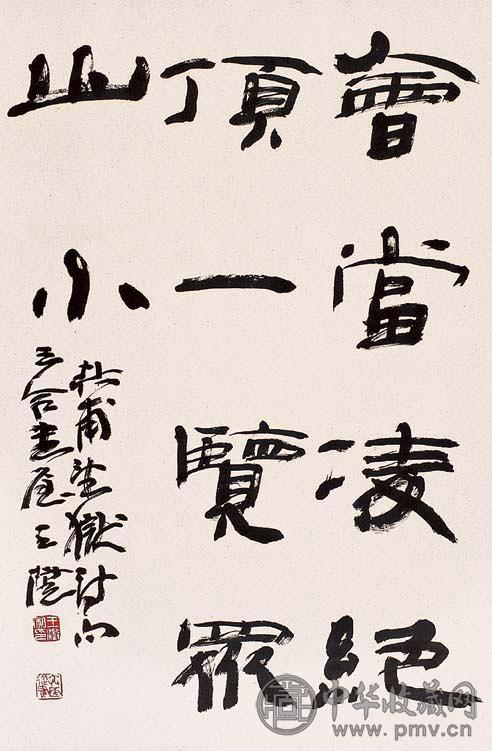 會當凌絕
頂一覽眾
山小
杜甫望嶽詩句
三合書屋王蘧
中华收藏网
www.pmv.cn